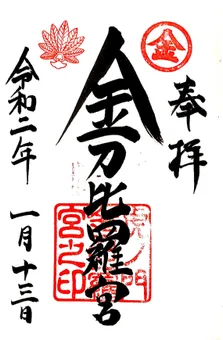 奉拝
金
金刀比羅宮
虎ノ門
金刀比羅
宮之印
令和二年
一月十三日